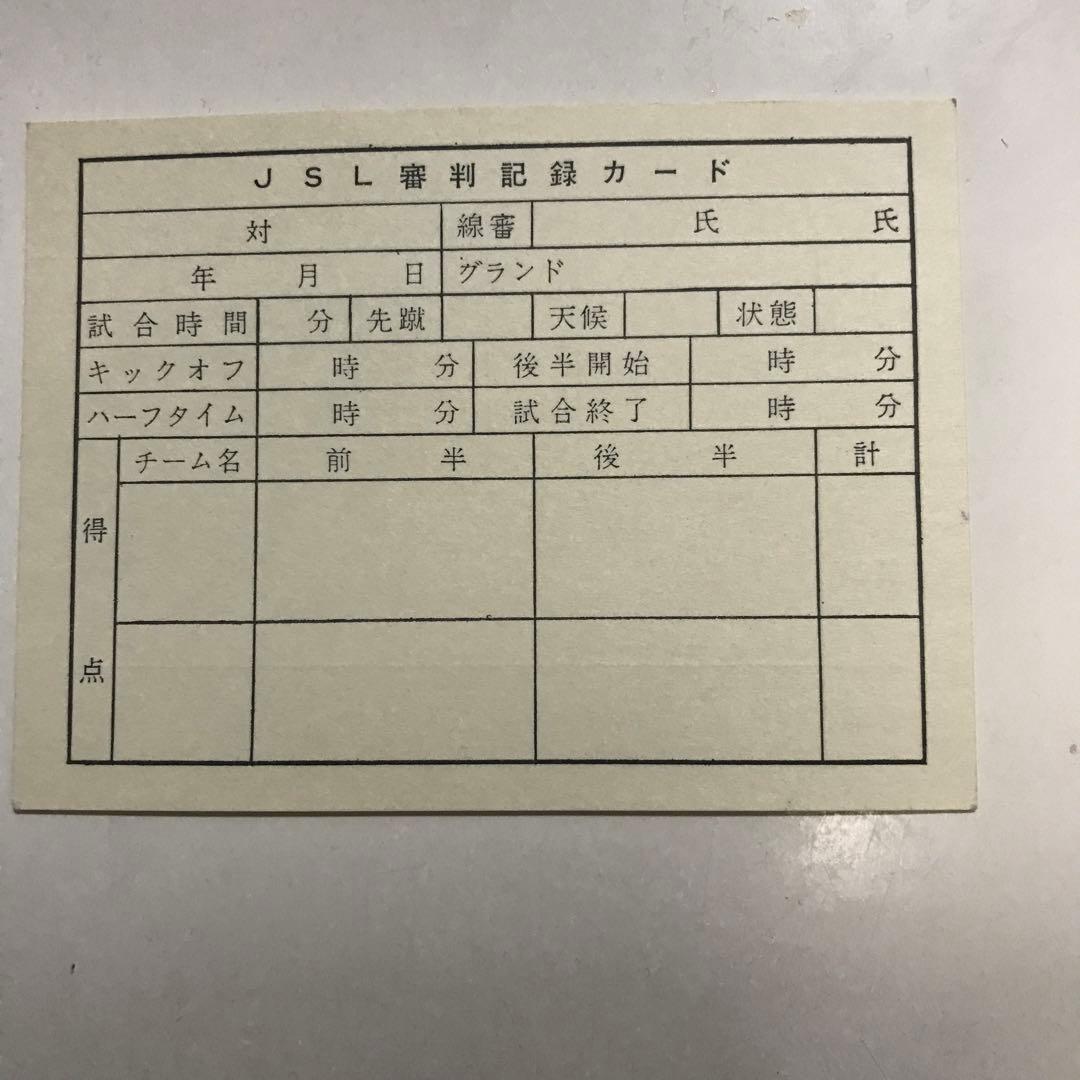 JSL審判記録カード
対 線審 氏 氏
年 月 日 グランド
試合時間 分 先蹴 天候 状態
キックオフ 時 分 後半開始 時 分
ハーフタイム 時 分 試合終了 時 分
得点 チーム名 前半 後半 計